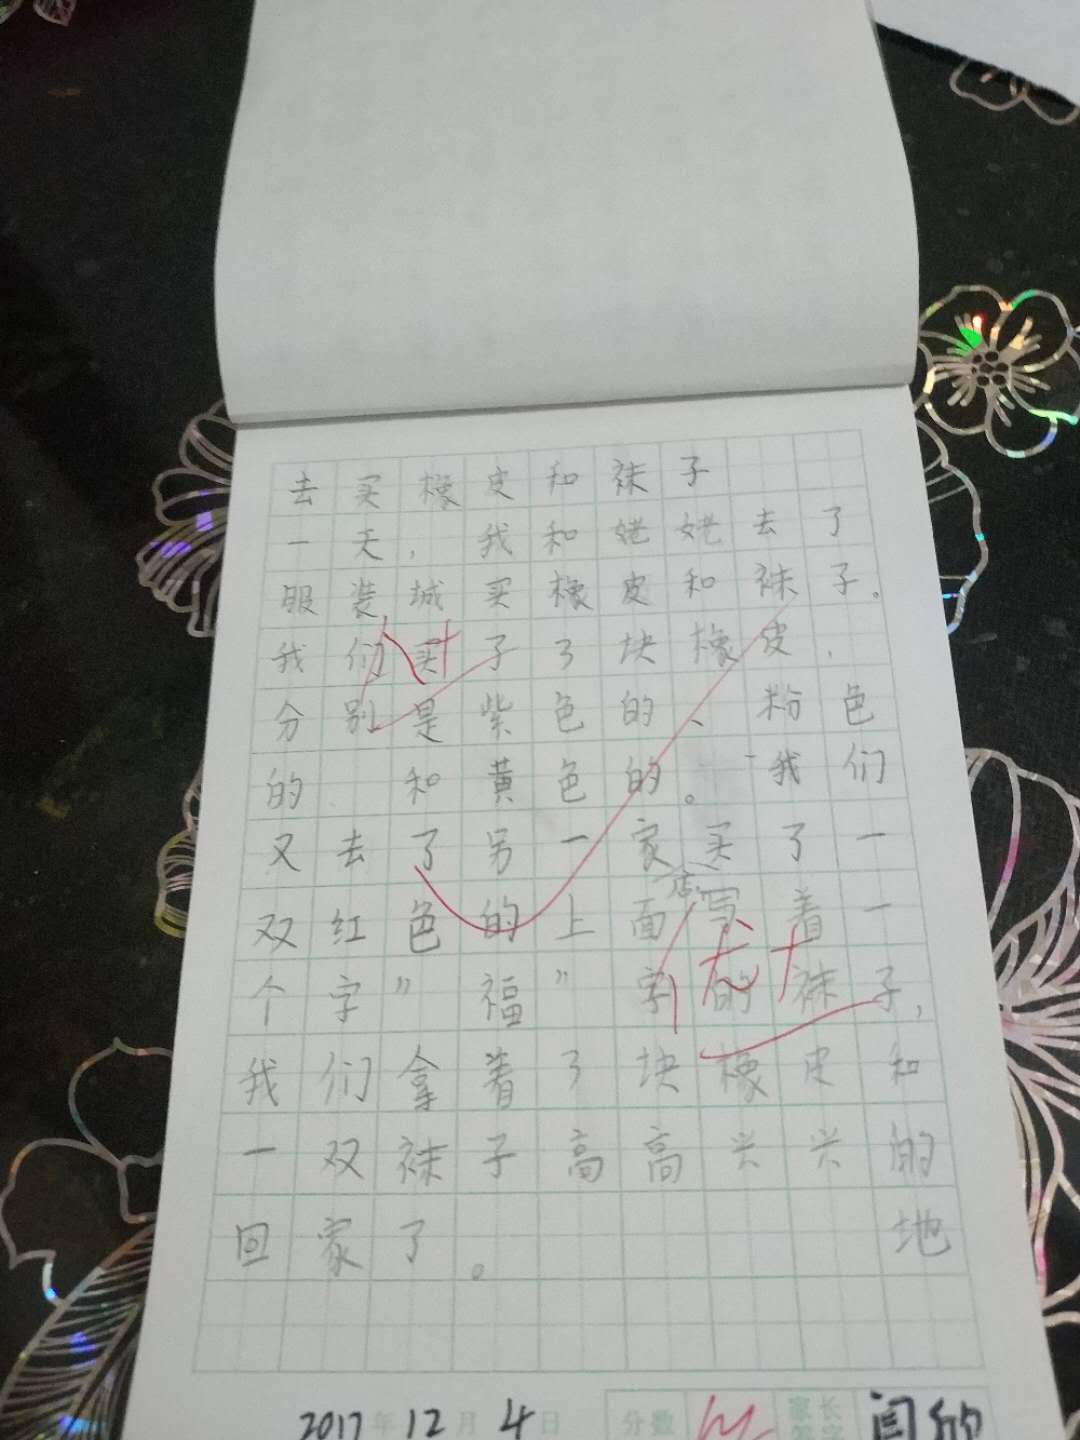 去买橡皮和袜子
一天，我和姥姥去了
服装城买橡皮和袜子。
我们买子了块橡皮，
分别是紫色的、粉色
的 和黄色的。我们
又去了另一家买了一
店
双红色的上面写着一
个字”福”字的袜子，
我们拿着了块橡皮和
一双袜子高高兴兴的
回家了。 地
2017年12月4日 分数 家长签字 闫欣